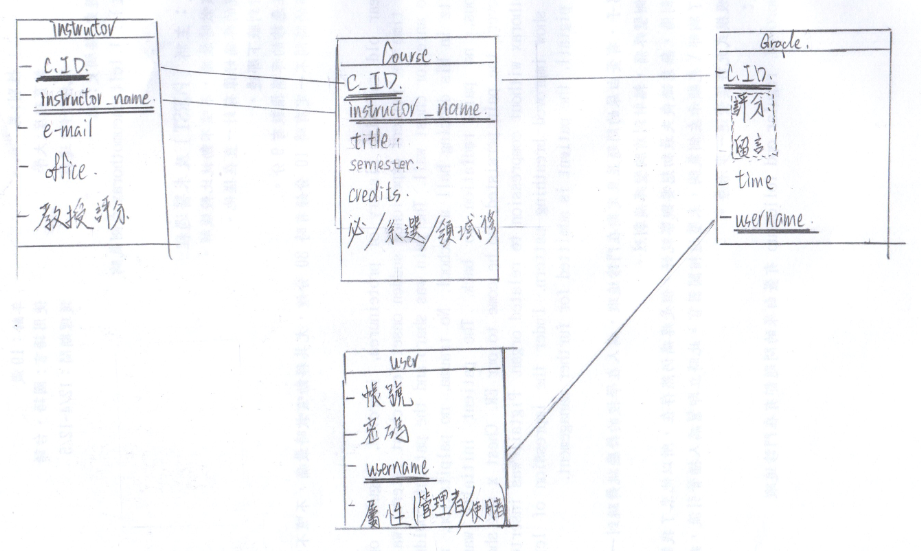 instructor
C.ID.
instructor_name.
e-mail
office.
教授評分
Course
C_ID.
instructor_name.
title.
semester.
credits.
必/系選/領域修
Grade.
C.ID.
評分.
留言.
time
username.
user
帳號
密碼
username
屬性(管理者/使用者)